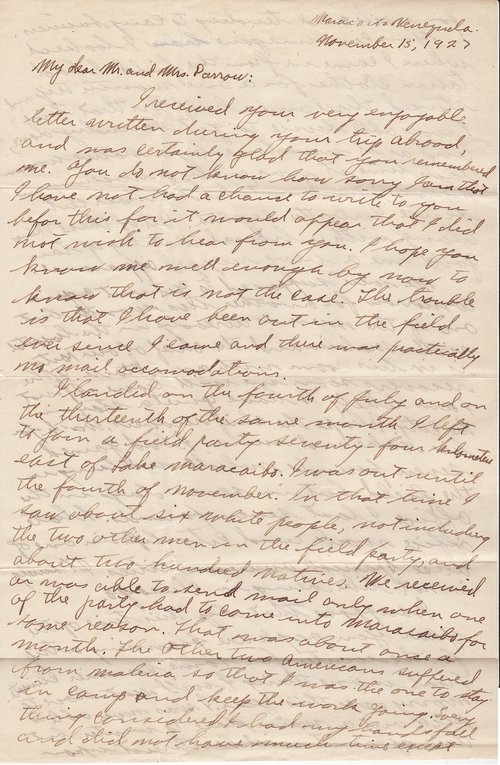 Maracaibo Venezuela.
November 15, 1927
My dear Mr. and Mrs. Parrow:
I received your very enjoyable
letter written during your trip abroad,
and was certainly glad that you remembered
me. You do not know how sorry I am that
I have not had a chance to write to you
befor this for it would appear that I did
not wish to hear from you. I hope you
know me well enough by now to
know that is not the case. The trouble
is that I have been out in the field
ever since I came and there was practically
no mail accomodations.
I landed on the fourth of July and on
the thirteenth of the same month I left
to join a field party seventy four kilometers
east of Lake Maracaibo. I was out until
the fourth of November. In that time I
saw about six white people, not including
the two other men in the field party, and
about two hundred natives. We received
or was able to send mail only when one
of the party had to come into Maracaibo for
some reason. That was about once a
month. The other two Americans suffered
from maleria so that I was the one to stay
in camp and keep the work going. Every
thing considered I had my hands full
and did not have much time except